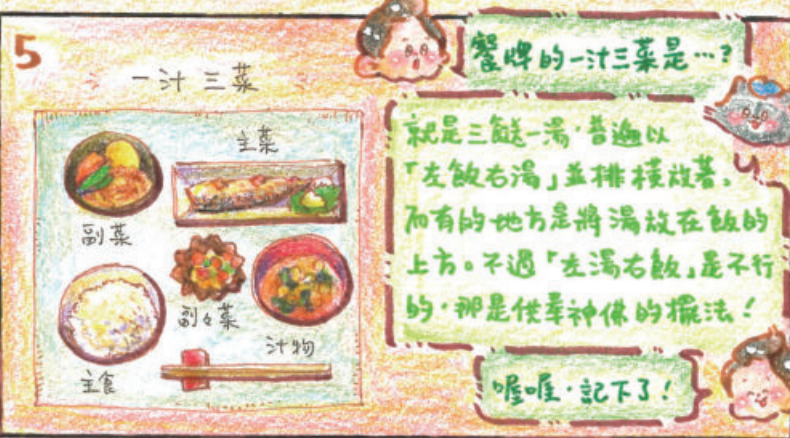 5
一汁三菜
主菜
副菜
副々菜
汁物
主食
餐牌的一汁三菜是…?
就是三餸一湯,普遍以
「左飯右湯」並排橫放著。
而有的地方是將湯放在飯的
上方。不過「左湯右飯」是不行
的,那是供奉神佛的擺法!
喔喔,記下了!